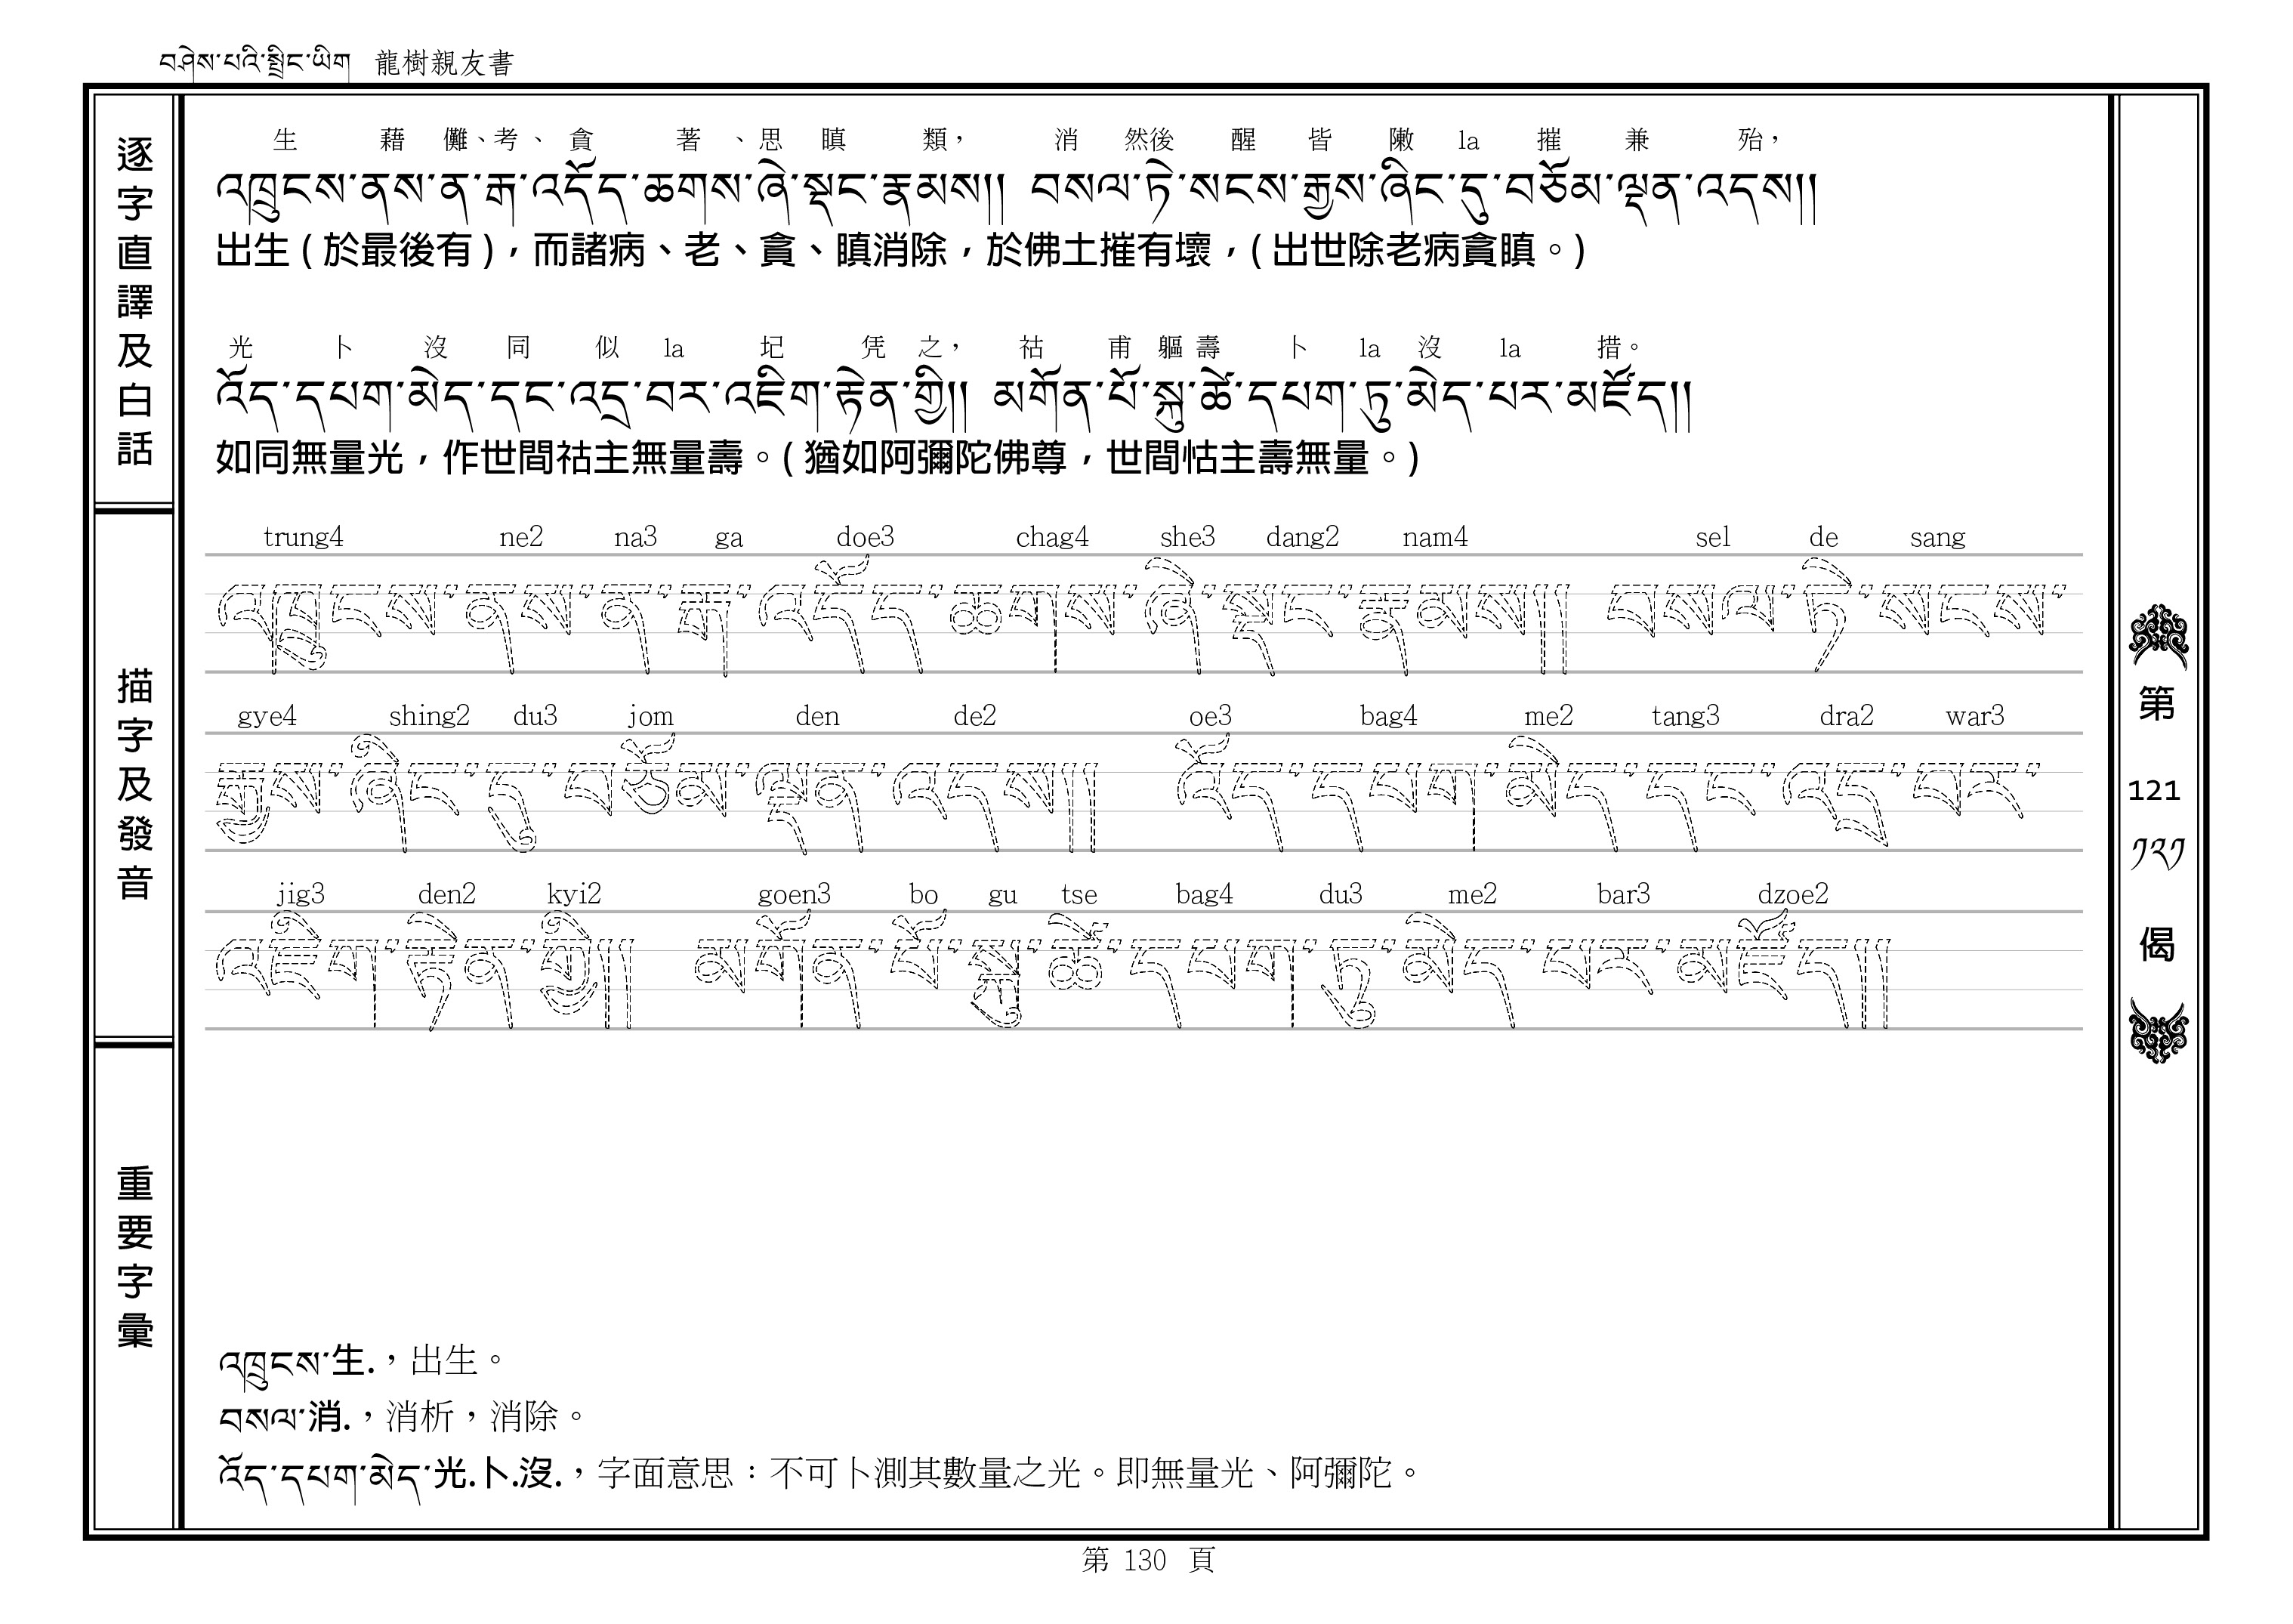 བཤེས་པའི་སྤྲིང་ཡིག 龍樹親友書
逐字直譯及白話
生 藉 儺、考、貪 著、思 瞋 類， 消 然後 醒 皆 敶 la 摧 兼 殆，
འཁྲུངས་ནས་ན་རྒ་འདོད་ཆགས་ཞེ་སྡང་རྣམས།། བསལ་ཏེ་སངས་རྒྱས་ཞིང་དུ་བཅོམ་ལྡན་འདས།།
出生(於最後有)，而諸病、老、貪、瞋消除，於佛土摧有壞，(出世除老病貪瞋。)
光 卜 沒 同 似 la 圮 凭 之， 祜 甫 軀 壽 卜 la 沒 la 措。
འོད་དཔག་མེད་དང་འདྲ་བར་འཇིག་རྟེན་གྱི།། མགོན་པོ་སྐུ་ཚེ་དཔག་ཏུ་མེད་པར་མཛོད།།
如同無量光，作世間祜主無量壽。(猶如阿彌陀佛尊，世間怙主壽無量。)
描字及發音
trung4 ne2 na3 ga doe3 chag4 she3 dang2 nam4 sel de sang
འཁྲུངས་ནས་ན་རྒ་འདོད་ཆགས་ཞེ་སྡང་རྣམས།། བསལ་ཏེ་སངས་
gye4 shing2 du3 jom den de2 oe3 bag4 me2 tang3 dra2 war3
རྒྱས་ཞིང་དུ་བཅོམ་ལྡན་འདས།། འོད་དཔག་མེད་དང་འདྲ་བར་
jig3 den2 kyi2 goen3 bo gu tse bag4 du3 me2 bar3 dzoe2
འཇིག་རྟེན་གྱི།། མགོན་པོ་སྐུ་ཚེ་དཔག་ཏུ་མེད་པར་མཛོད།།
重要字彙
འཁྲུངས་生.，出生。
བསལ་消.，消析，消除。
འོད་དཔག་མེད་光.卜.沒.，字面意思：不可卜測其數量之光。即無量光、阿彌陀。
第
121
༡༢༡
偈
第 130 頁